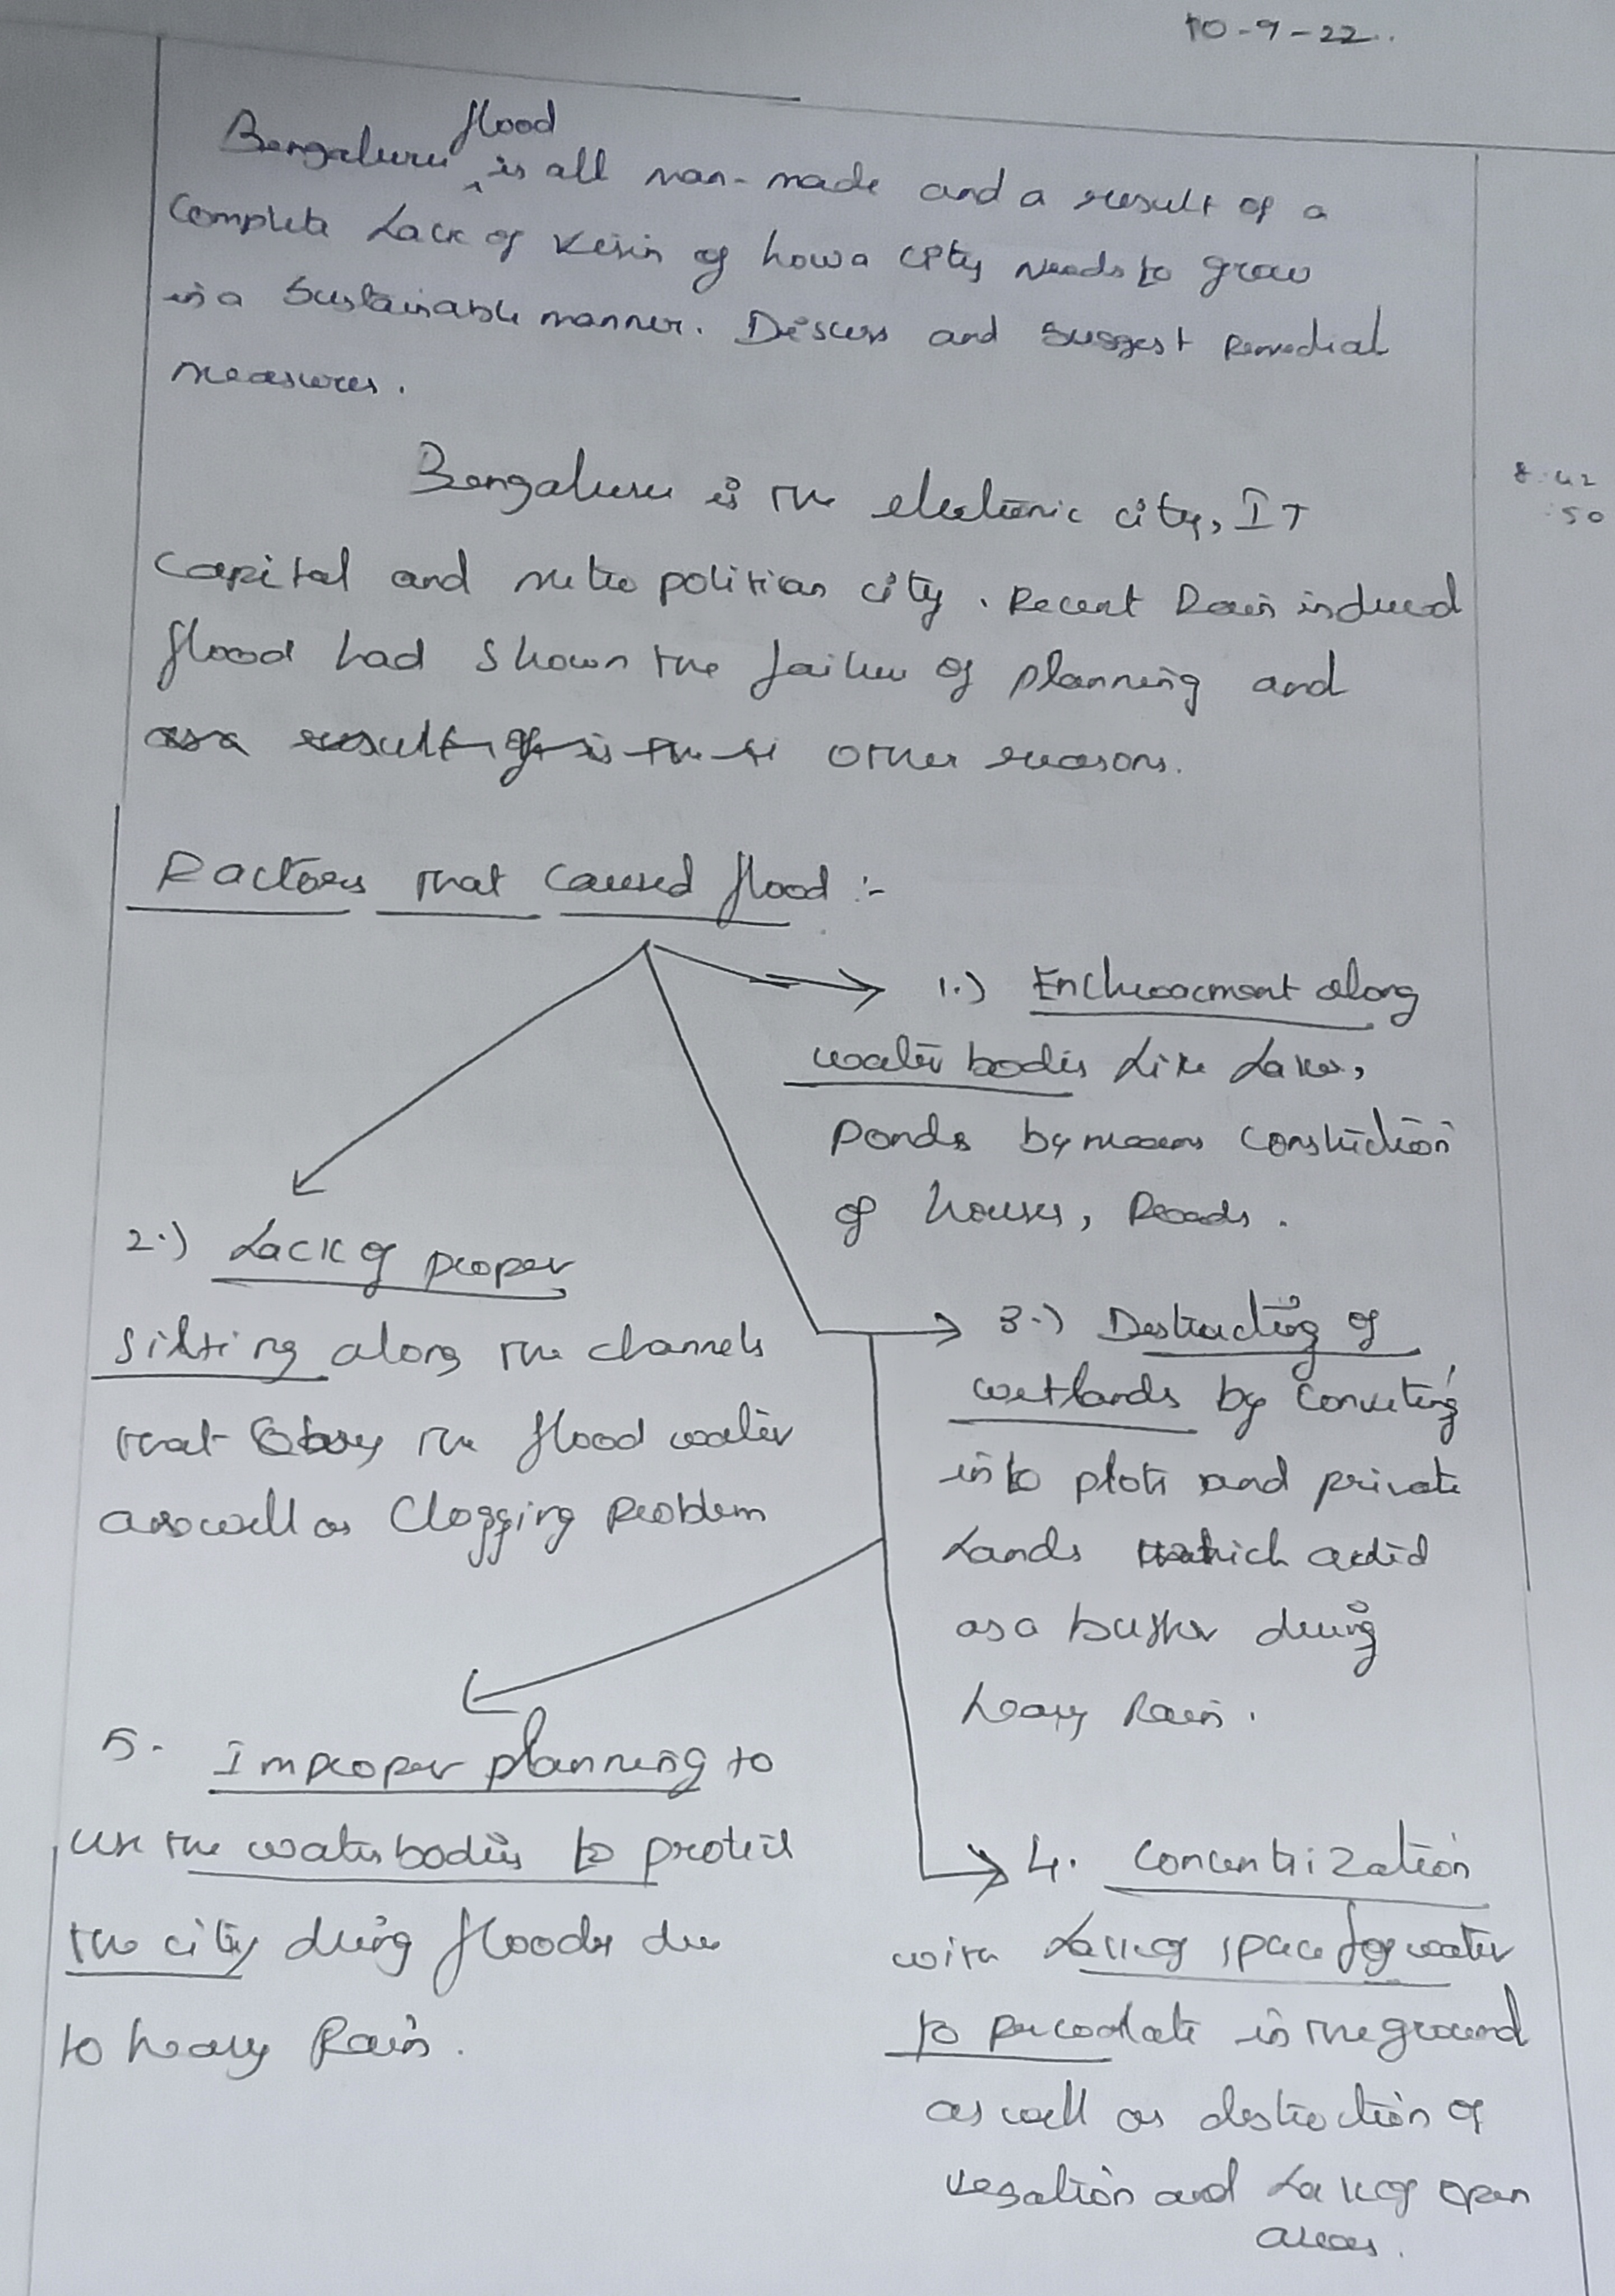 10-9-22..
flood
Bengaluru ^ is all man-made and a result of a
Complete Lack of Vision of how a city needs to grow
in a Sustainable manner. Discuss and suggest Remedial
measures.
Bengaluru is the electronic city, IT
8:42
:50
Capital and metro politian city. Recent Rain induced
flood had shown the failure of planning and
other reasons.
Factors that caused flood :-
1.) Enchroacment along
water bodies Like Lakes,
Ponds by means constriction
of houses, Roads.
2.) Lack of proper
Silting along the channels
that the flood water
aswell as Clogging Problem
3.) Destructing of
wetlands by converting
into plots and private
Lands which acted
as a buffer during
heavy Rain.
5. Improper planning to
use the waterbodies to protect
the city during floods due
to heavy Rain.
4. Concentrization
with Lack of space for water
to percoolate in the ground
as well as destruction of
vegation and Lack of open
areas.